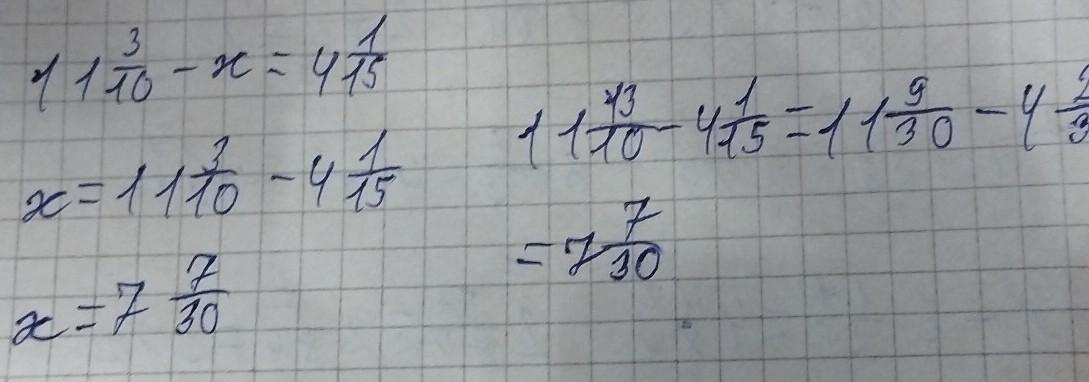 11 3/10 - x = 4 1/15
x = 11 3/10 - 4 1/15
x = 7 7/30
11 13/10 - 4 1/15 = 11 9/30 - 4
= 7 7/30